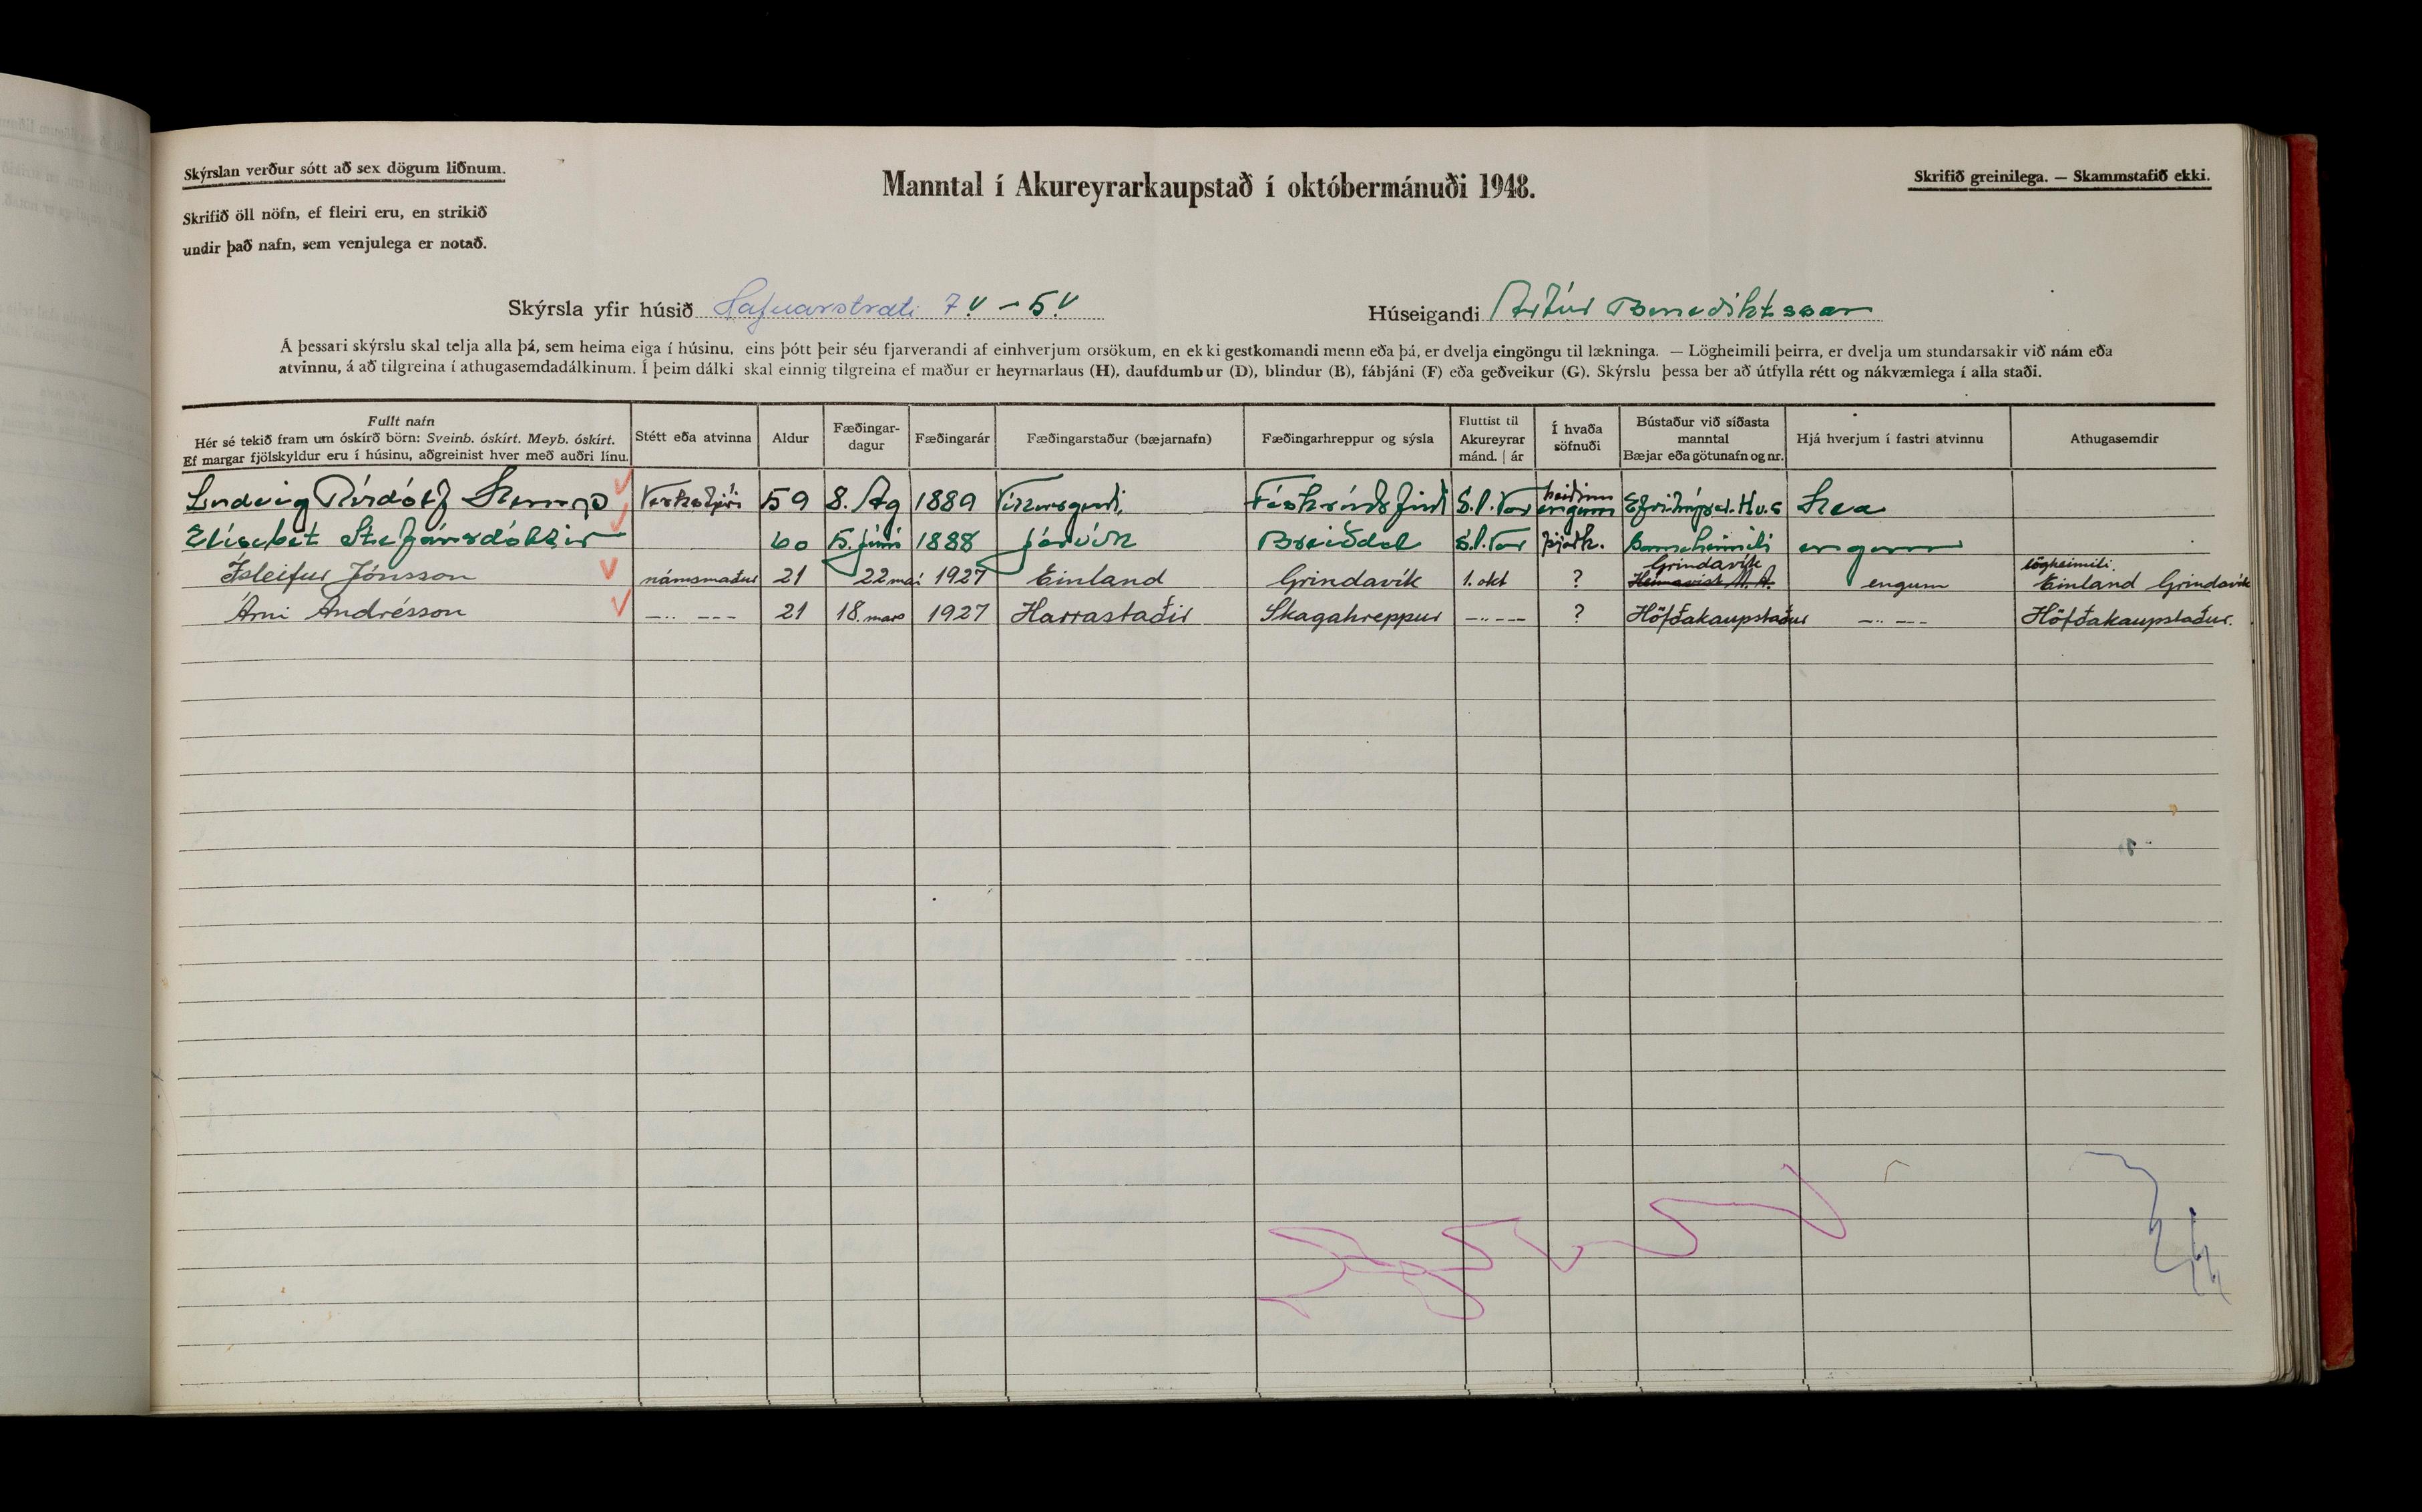 Skýrslan verður sótt að sex dögum liðnum.
Skrifið öll nöfn, ef fleiri eru, en strikið
undir það nafn, sem venjulega er notað.
Manntal í Akureyrarkaupstað í októbermánuði 1948.
Skrifið greinilega. — Skammstafið ekki.
Skýrsla yfir húsið Hafnarstræti 7 – 5
Húseigandi Artúr Benediktsson
Á þessari skýrslu skal telja alla þá, sem heima eiga í húsinu, eins þótt þeir séu fjarverandi af einhverjum orsökum, en ekki gestkomandi menn eða þá, er dvelja eingöngu til lækninga. — Lögheimili þeirra, er dvelja um stundarsakir við nám eða
atvinnu, á að tilgreina í athugasemdadálkinum. Í þeim dálki skal einnig tilgreina ef maður er heyrnarlaus (H), daufdumbur (D), blindur (B), fábjáni (F) eða geðveikur (G). Skýrslu þessa ber að útfylla rétt og nákvæmlega í alla staði.
Fullt nafn
Hér sé tekið fram um óskírð börn: Sveinb. óskírt. Meyb. óskírt.
Ef margar fjölskyldur eru í húsinu, aðgreinist hver með auðri línu.
Stétt eða atvinna
Aldur
Fæðingar-
dagur
Fæðingarár
Fæðingarstaður (bæjarnafn)
Fæðingarhreppur og sýsla
Fluttist til
Akureyrar
mánd. | ár
Í hvaða
söfnuði
Bústaður við síðasta
manntal
Bæjar eða götunafn og nr.
Hjá hverjum í fastri atvinnu
Athugasemdir
Ludvig 59 8. Ag 1889 engum
Elísebet Stefánsdóttir 60 5. júní 1888 Breiðdal þjóðk. engum
Ísleifur Jónsson námsmaður 21 22 maí 1927 Einland Grindavík 1. okt ? Grindavík Heimavist M.A. engum lögheimili. Einland Grindavík
Árni Andrésson —..— 21 18. mars 1927 Harrastaðir Skagahreppur —..— ? Höfðakaupstaður —..— Höfðakaupstaður.